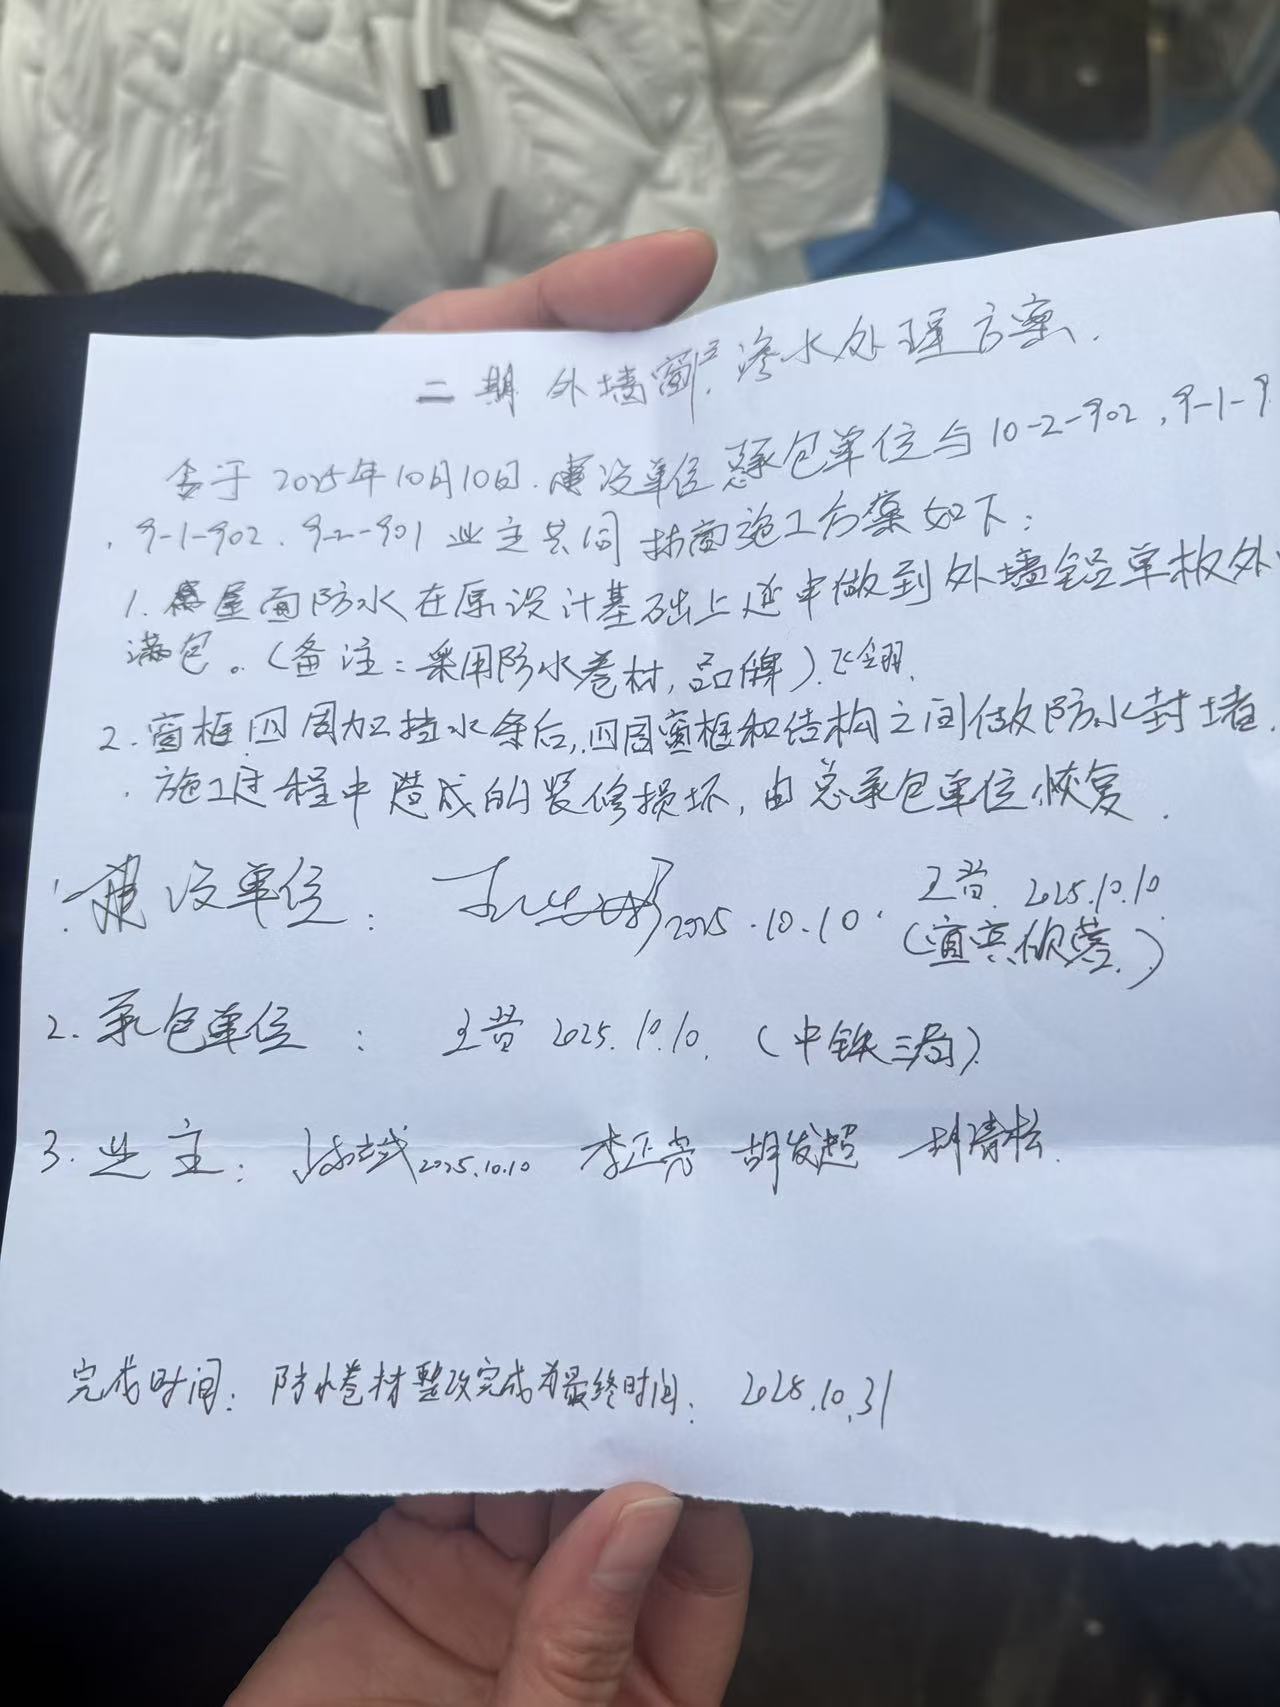 二期外墙窗、渗水处理方案.
于2025年10月10日.建设单位总承包单位与10-2-902,9-1-9
.9-1-902、9-2-901业主共同协商施工方案如下：
1.屋面防水在原设计基础上延申做到外墙铝单板外
满包。（备注：采用防水卷材,品牌）.飞翎.
2.窗框四周加挡水条后,四周窗框和结构之间做防水封堵.
.施工过程中造成的装修损坏,由总承包单位恢复.
1.建设单位： 2025.10.10. 王营 2025.10.10
（宜宾）
2.承包单位： 王营 2025.10.10.（中铁三局）
3.业主： 2025.10.10 李正亮 胡发超 胡清松.
完成时间：防水卷材整改完成为最终时间：2025.10.31